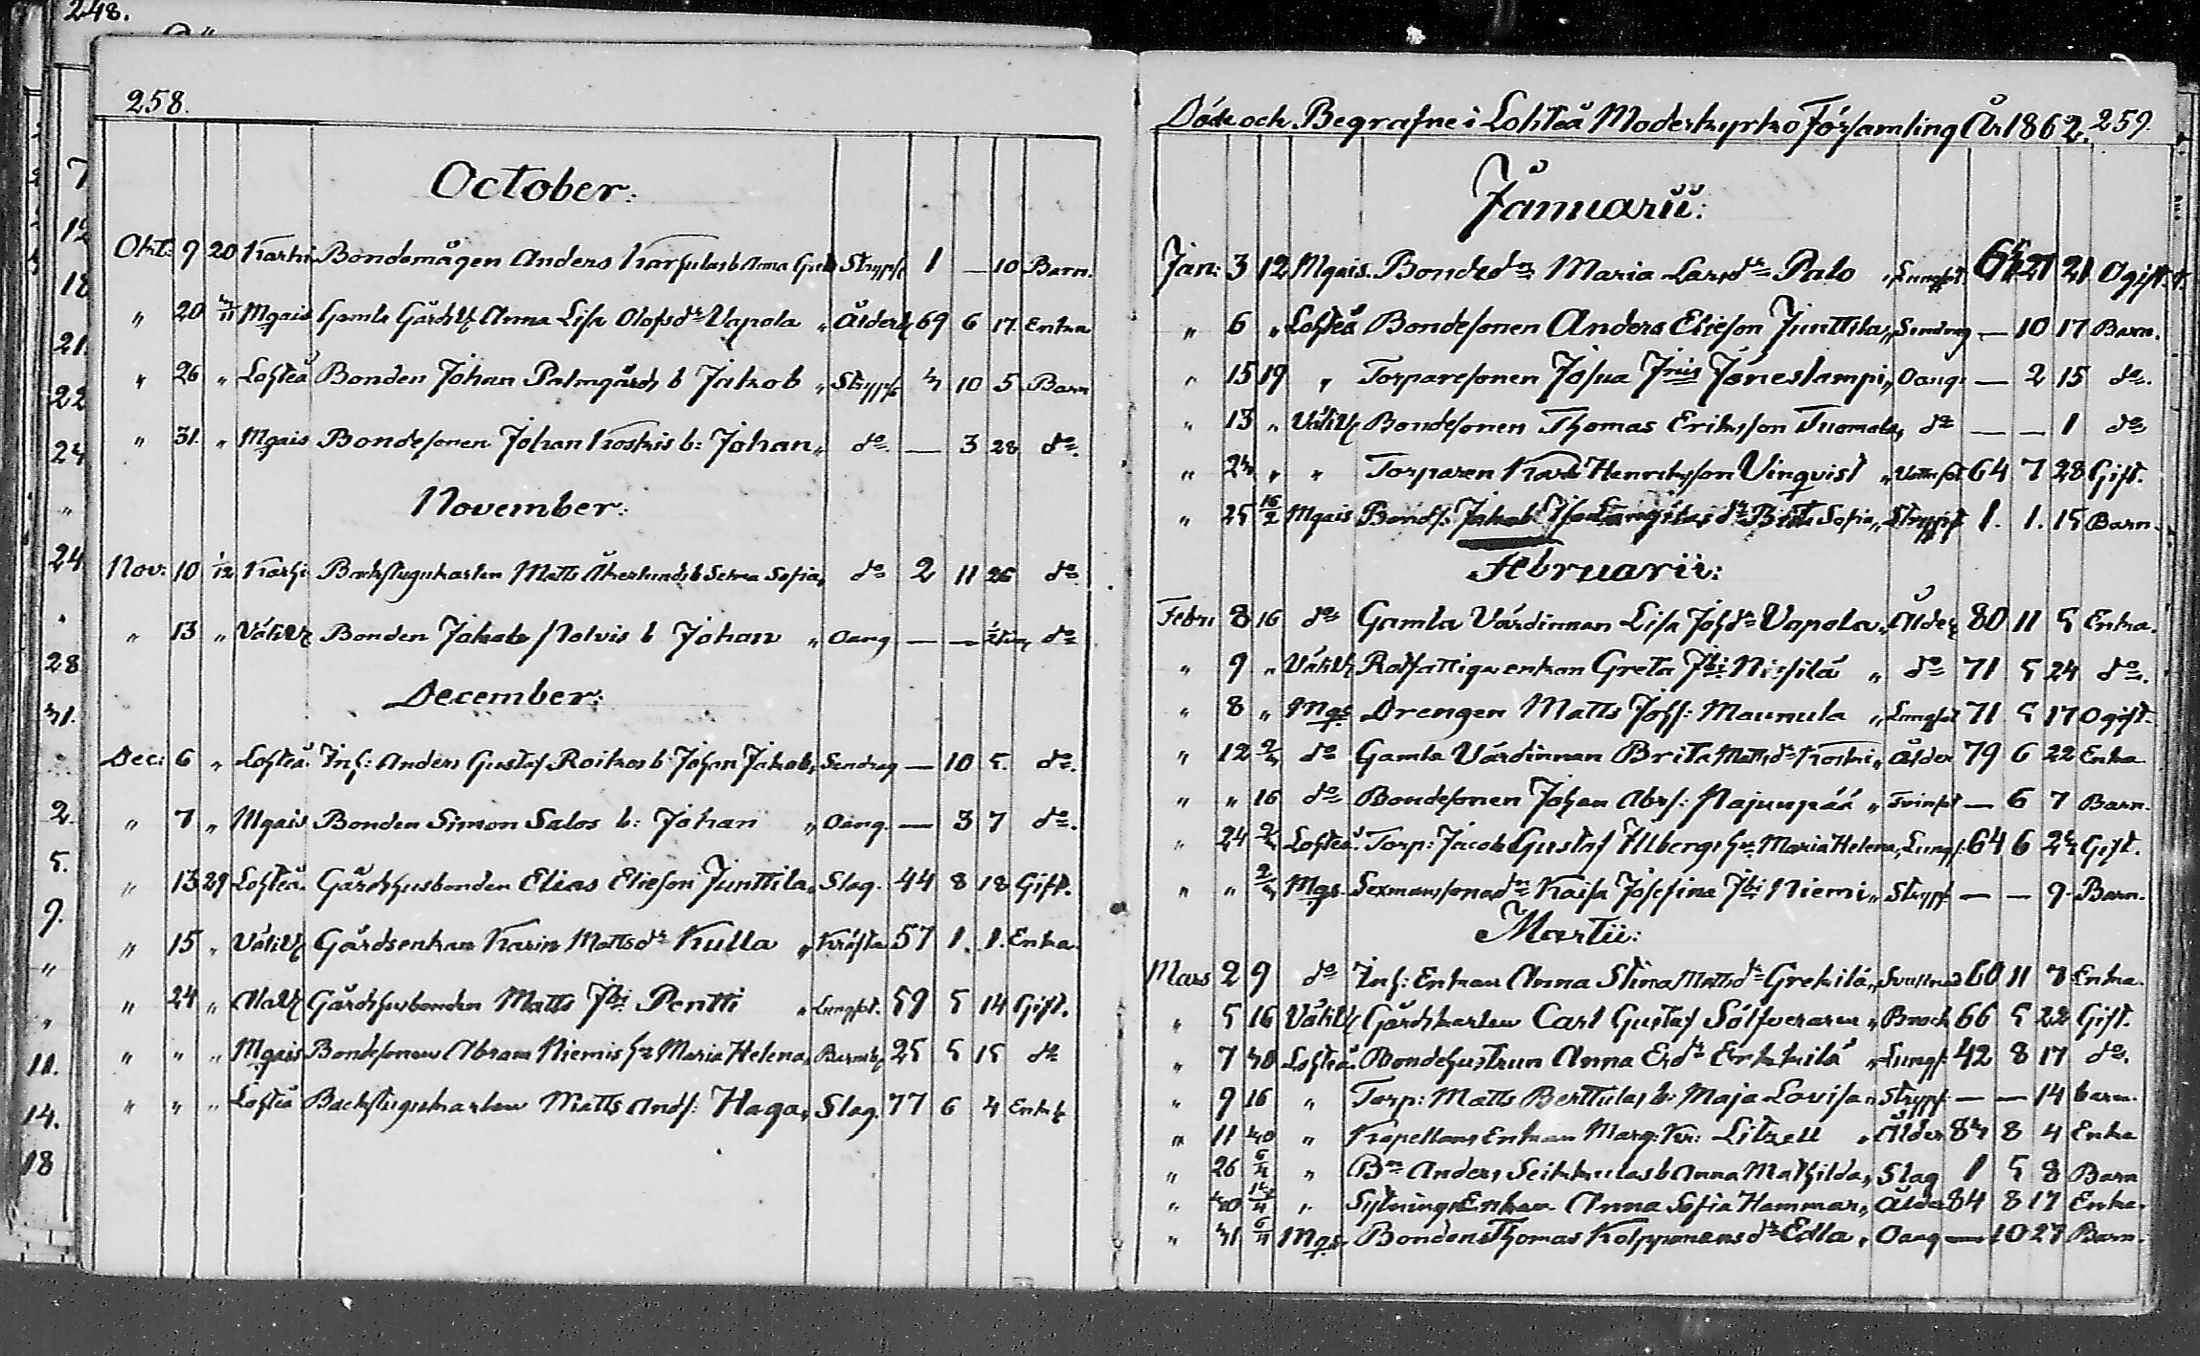 248.
258.
October:
Okt: 9 20 Karhi Bondemågen Anders Karhulas b Anna Greta Strypsj 1 — 10 Barn.
" 20 3/11 Mgais Gamla Gårdsk Anna Lisa Olofsdr Vapola " Ålderd 69 6 17. Enka
" 26 " Lohteå Bonden Johan Palmgårds b Jakob " Strypsj 3 10 5 Barn
" 31. " Mgais Bondesonen Johan Koskis b: Johan " do. — 3 28 do.
November:
Nov: 10 1/12 Karhi Backstugukarlen Matts Åkerlunds b Serna Sofia " do 2 11 26 do
" 13 " Välikk Bonden Jakob Polvis b Johan " Oang — — do
December:
Dec: 6 " Lohteå Inh: Anders Gustaf Roikos b. Johan Jakob " Sendrag — 10 5. do.
" 7 " Mgais Bonden Simon Salos b: Johan " Oang. — 3 7 do.
" 13 29 Lohteå. Gårdshusbonden Elias Elieson Junttila " Slag. 44 8 18 Gift.
" 15 " Välikk Gårdsenkan Karin Mattsdr Kulla " Kräfta 57 1. 1. Enka.
" 24 " Alak Gårdshusbonden Matts Jbi Pentti " Lungsot. 59 5 14 Gift.
" " " Mgais Bondesonen Abram Niemis hu Maria Helena " Barnsb 25 5 15 do
" " " Lohteå Backstugukarlen Matts Ands: Haga " Slag. 77 6 4 Enkl
Döde och Begrafne i Lohteå Moderkyrko Församling År 1862. 259.
Januarii:
Jan: 3 12 Mgais. Bondedn Maria Larsdr Palo " Lungsot. 21 Ogift.
" 6 " Lohteå Bondesonen Anders Elieson Junttila " Sendrag — 10 17 Barn.
" 15 19 " Torparesonen Josua Jnis Joneslampi " Oang. — 2 15 do.
" 13 " Välikk Bondesonen Thomas Eriksson Tuomala " do — — 1 do
" 23 " " Torparen Karl Henriksson Vinqvist " Vattusot 64 7 28 Gift.
" 25 16/2 Mgais Bonds: Jakob dr Brita Sofia " Strypsj 1. 1. 15 Barn.
Februarii:
Febr: 8 16 do Gamla Värdinnan Lisa Johdr Vapola " Ålder 80 11 5 Enka.
" 9 " Välikk Rotfattigaenkan Greta Jbi Nissilä " do 71 5 24 do.
" 8 " Mgs Drengen Matts Johs: Maunula " Lungsot 71 5 17 Ogift.
" 12 2/3 do Gamla Värdinnan Brita Mattsdr Koski " Ålder 79 6 22 Enka
" " 16 do Bondesonen Johan Abrs: Pajunpää " Tvinsot — 6 7 Barn.
" 24 2/3 Lohteå. Torp: Jacob Gustaf Ilbergs hu Maria Helena " Lungs: 64 6 23 Gift.
" " 2/3 Mgs. Sexmanssonadn Kaisa Josefina Jbi Niemi " Strypsj — — 9. Barn.
Martii:
Mars 2 9 do Inh: Enkan Anna Stina Mattsdr Grekilä " 60 11 7 Enka.
" 5 16 Välikk Gårdskarlen Carl Gustaf Sölfveraren " Brock 66 5 22 Gift.
" 7 30 Lohteå. Bondehustrun Anna Erdr Erkkilä " Lungs: 42 8 17 do.
" 9 16 " Torp: Matts Berttulas b: Maja Lovisa " Strypsj — — 14 barn.
" 11 30 " Kapellans Enkan Marg: Kr: Litzell " Ålder 83 8 4 Enka
" 26 6/4 " Bn Anders Seikkulas b Anna Mathilda " Slag 1 5 8 Barn
" 30 13/4 " Sytnings Enkan Anna Sofia Hammar " Ålder 84 8 17 Enka.
" 31 6/4 Mgs. Bonden Thomas Kolpponens dr Edla " Oang — 10 27 Barn.
7
12
18
21.
22
24
"
24
28
31.
2.
5.
9.
"
"
11.
14.
18